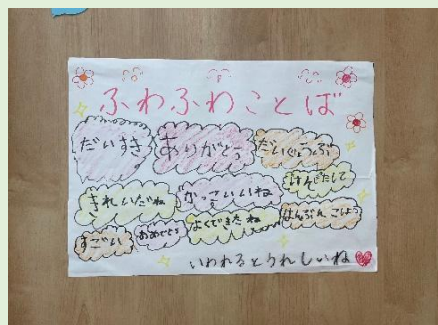 ふわふわことば
だいすき
ありがとう
だいじょうぶ
きれいだね
かっこいいね
すごい
おめでとう
よくできたね
はんぶんこしよう
いわれるとうれしいね